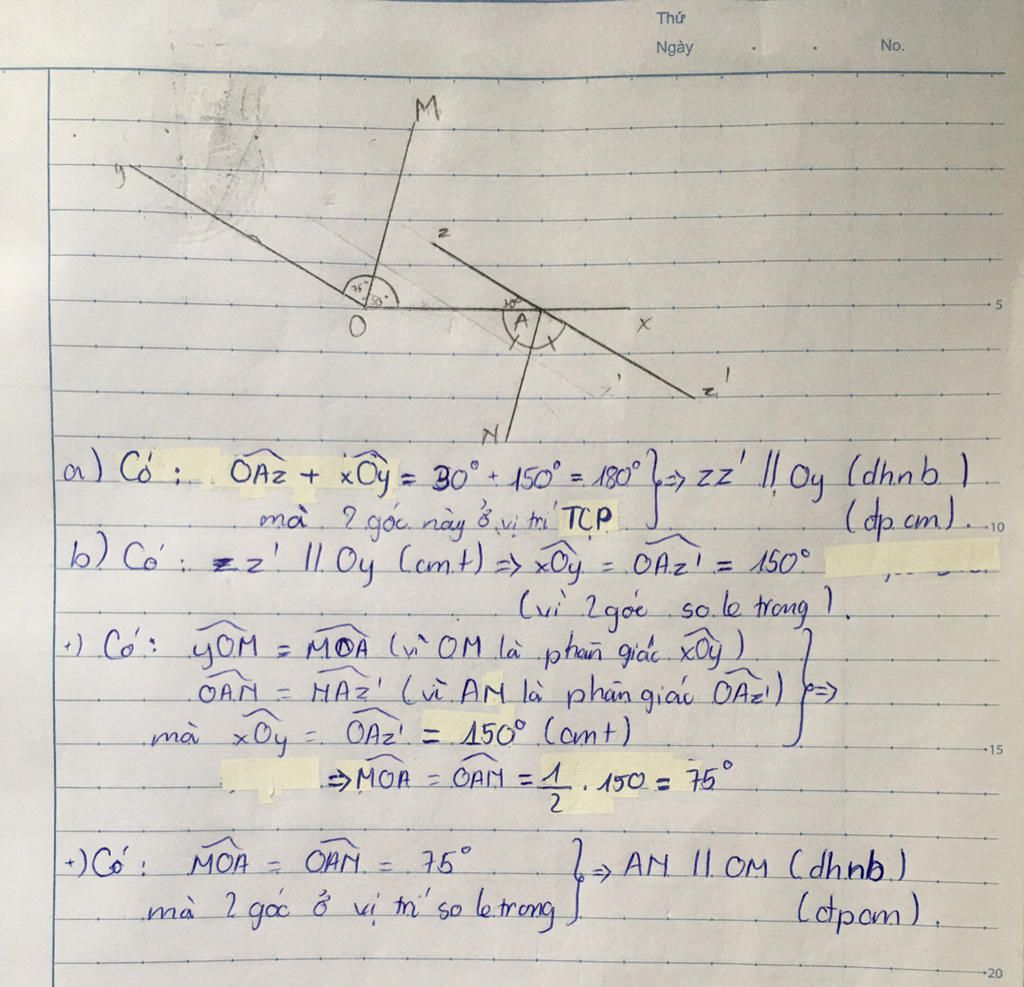 Thứ
Ngày . . No.
M
y
z
75° 50°
30°
O
A
x
z'
z'
N
5
a) Có: OAz + xOy = 30° + 150° = 180° } => zz' // Oy (dhnb)
mà 2 góc này ở vị trí TCP (đpcm). 10
b) Có: zz' // Oy (cmt) => xOy = OAz' = 150°
(vì 2 góc so le trong).
+) Có: yOM = MOA (vì OM là phân giác xOy)
OAN = NAz' (vì AN là phân giác OAz') } =>
mà xOy = OAz' = 150° (cmt) 15
=> MOA = OAN = 1/2 . 150 = 75°
+) Có: MOA = OAN = 75° } => AN // OM (dhnb)
mà 2 góc ở vị trí so le trong (đpcm).
20